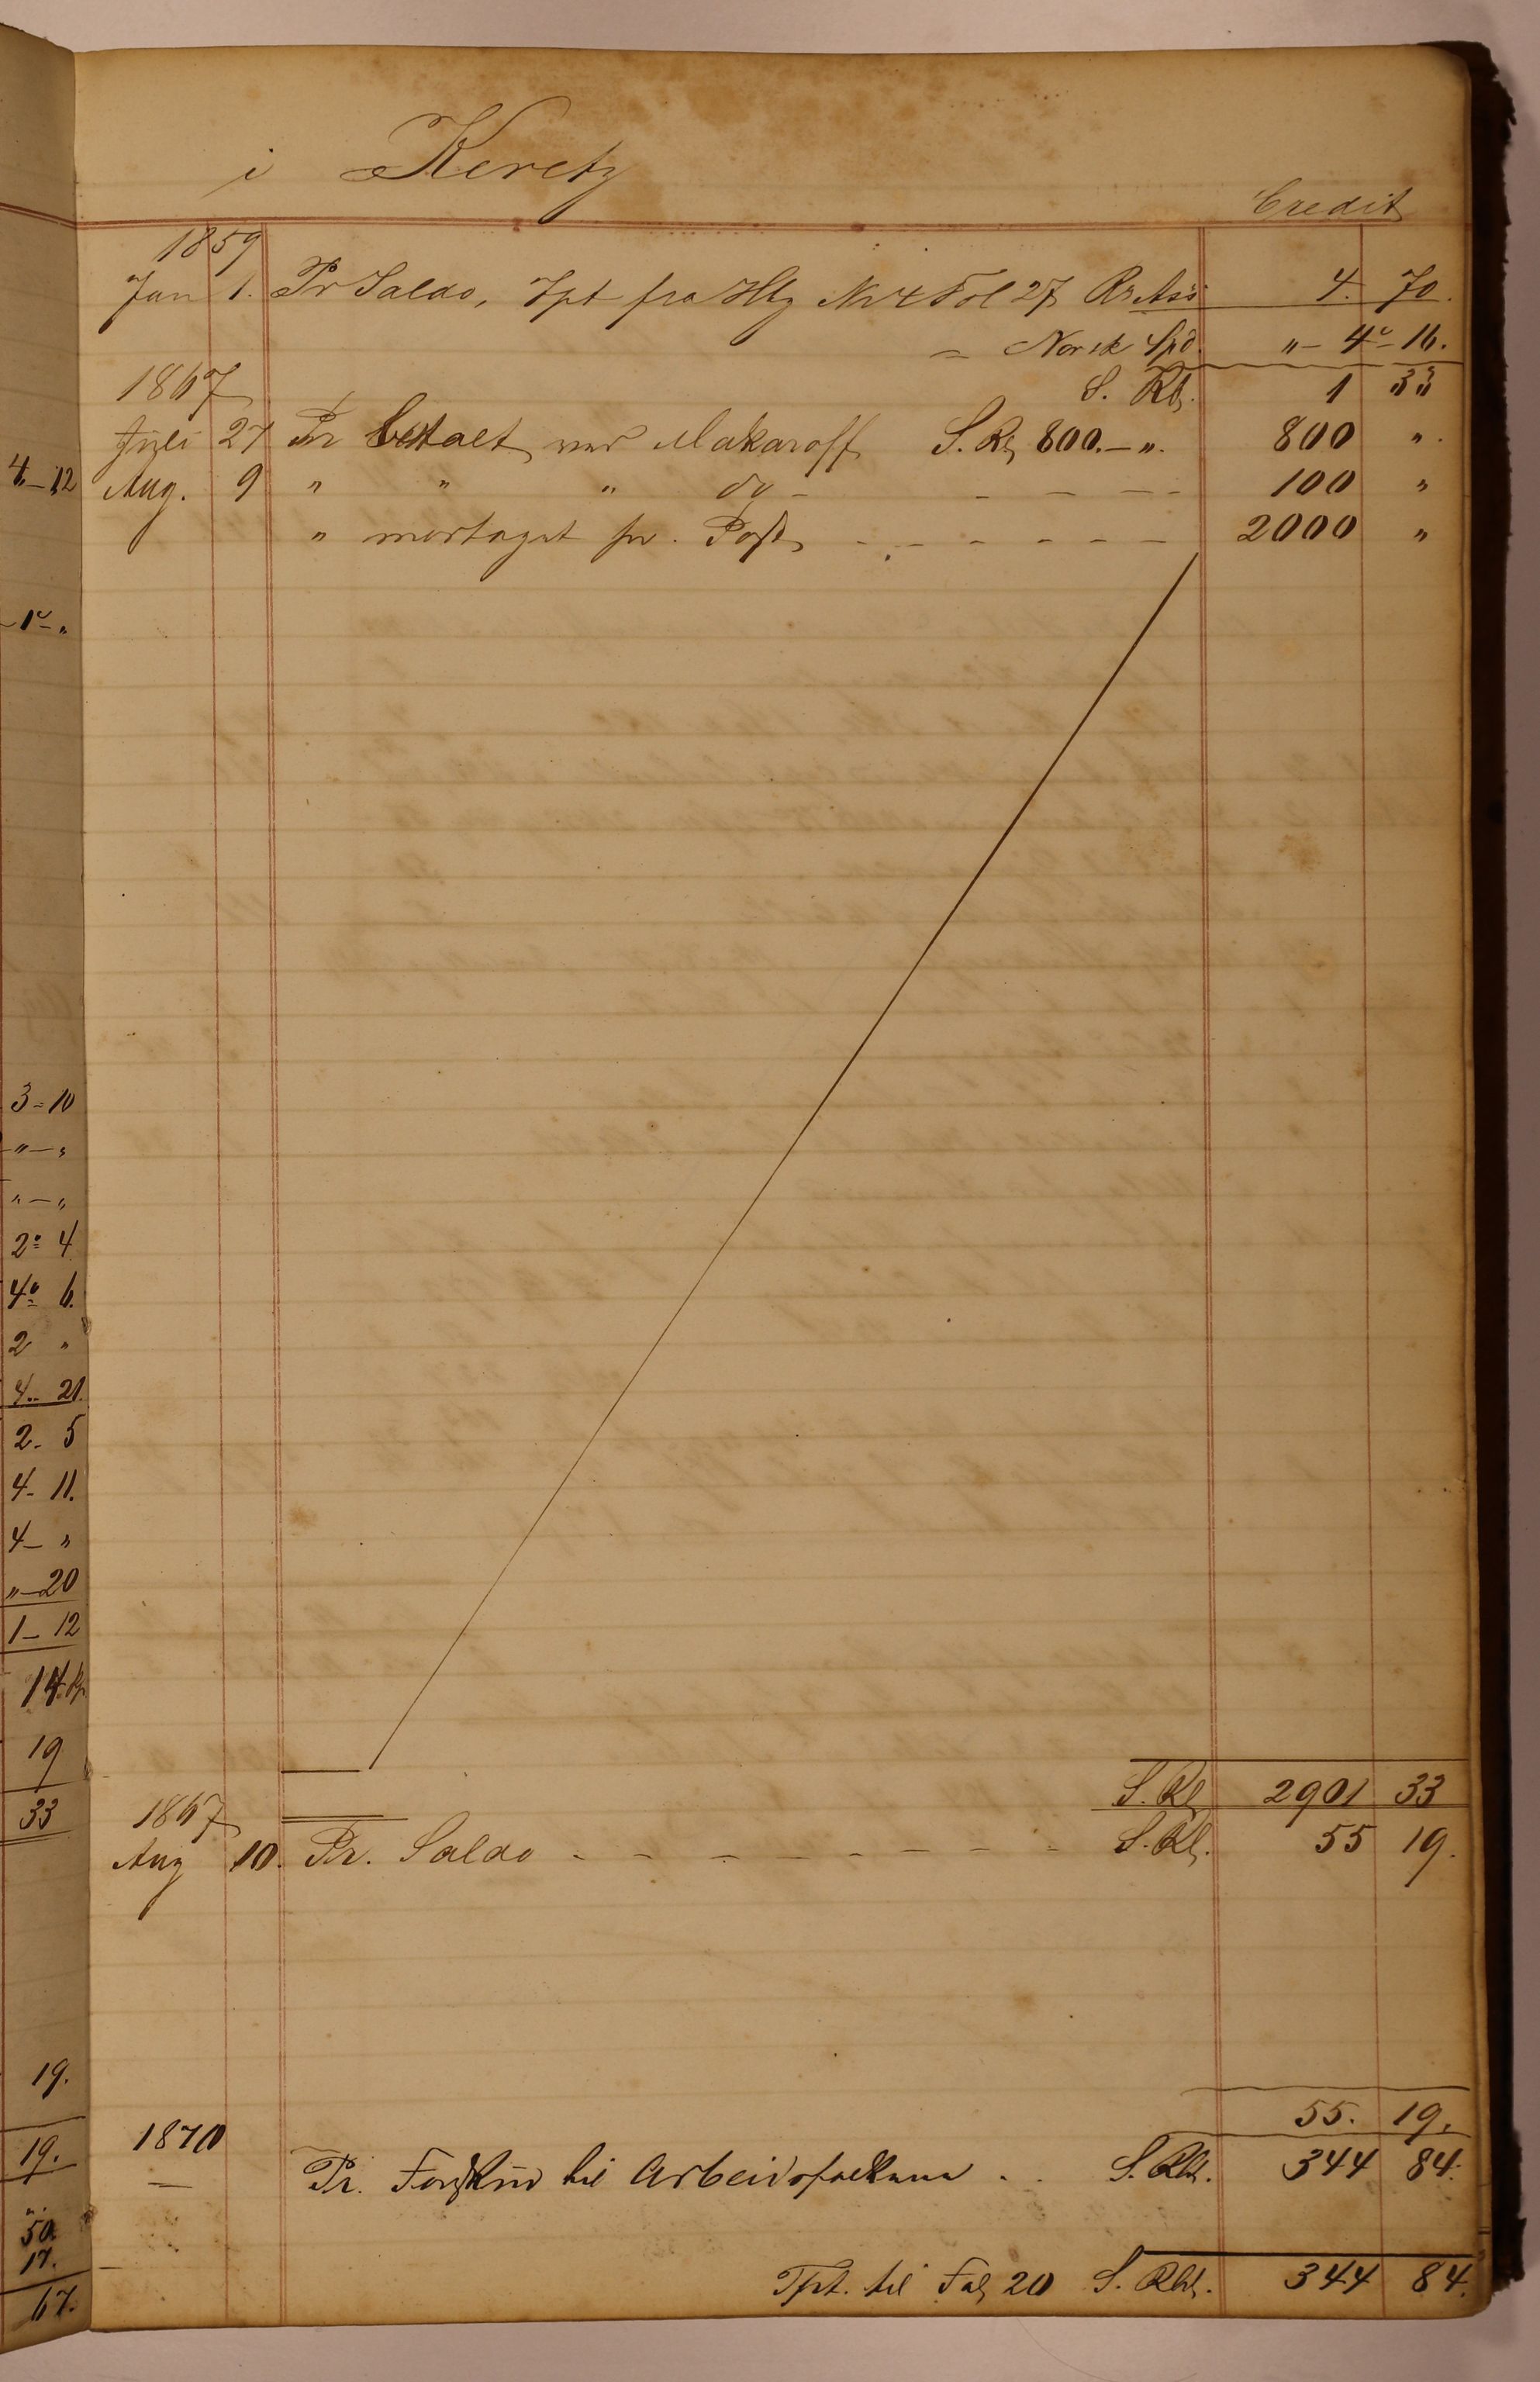 i Keretz
Credit
1859
Jan 1. Pr Saldo, Tpt fra Hbg No 4 Fol 27 Rr Ass 4. 70.
= Norsk Spd. "- 4"- 16.
1867 S. Rbl. 1 33
Juli 27 Pr betalt ved Makaroff S. Rbl 800.-". 800 ".
4-12 Aug. 9 " " " do - - - - - 100 "
" modtaget pr. Post - - - - - - 2000 "
3-10
"-"
"-"
2" 4
4" 6.
2 "
4.. 21.
2- 5
4- 11.
4- "
"-20
1- 12
14
19
S. Rbl 2901 33
33 1867
Aug 10. Pr. Saldo - - - - - - - - - S. Rbl. 55 19.
19.
55. 19.
19. 1870
— Pr. Forskud til Arbeidsfolkene . . S. Rbl. 344 84.
50.
17.
Tpt. til Fol 20 S. Rbl. 344 84.
67.